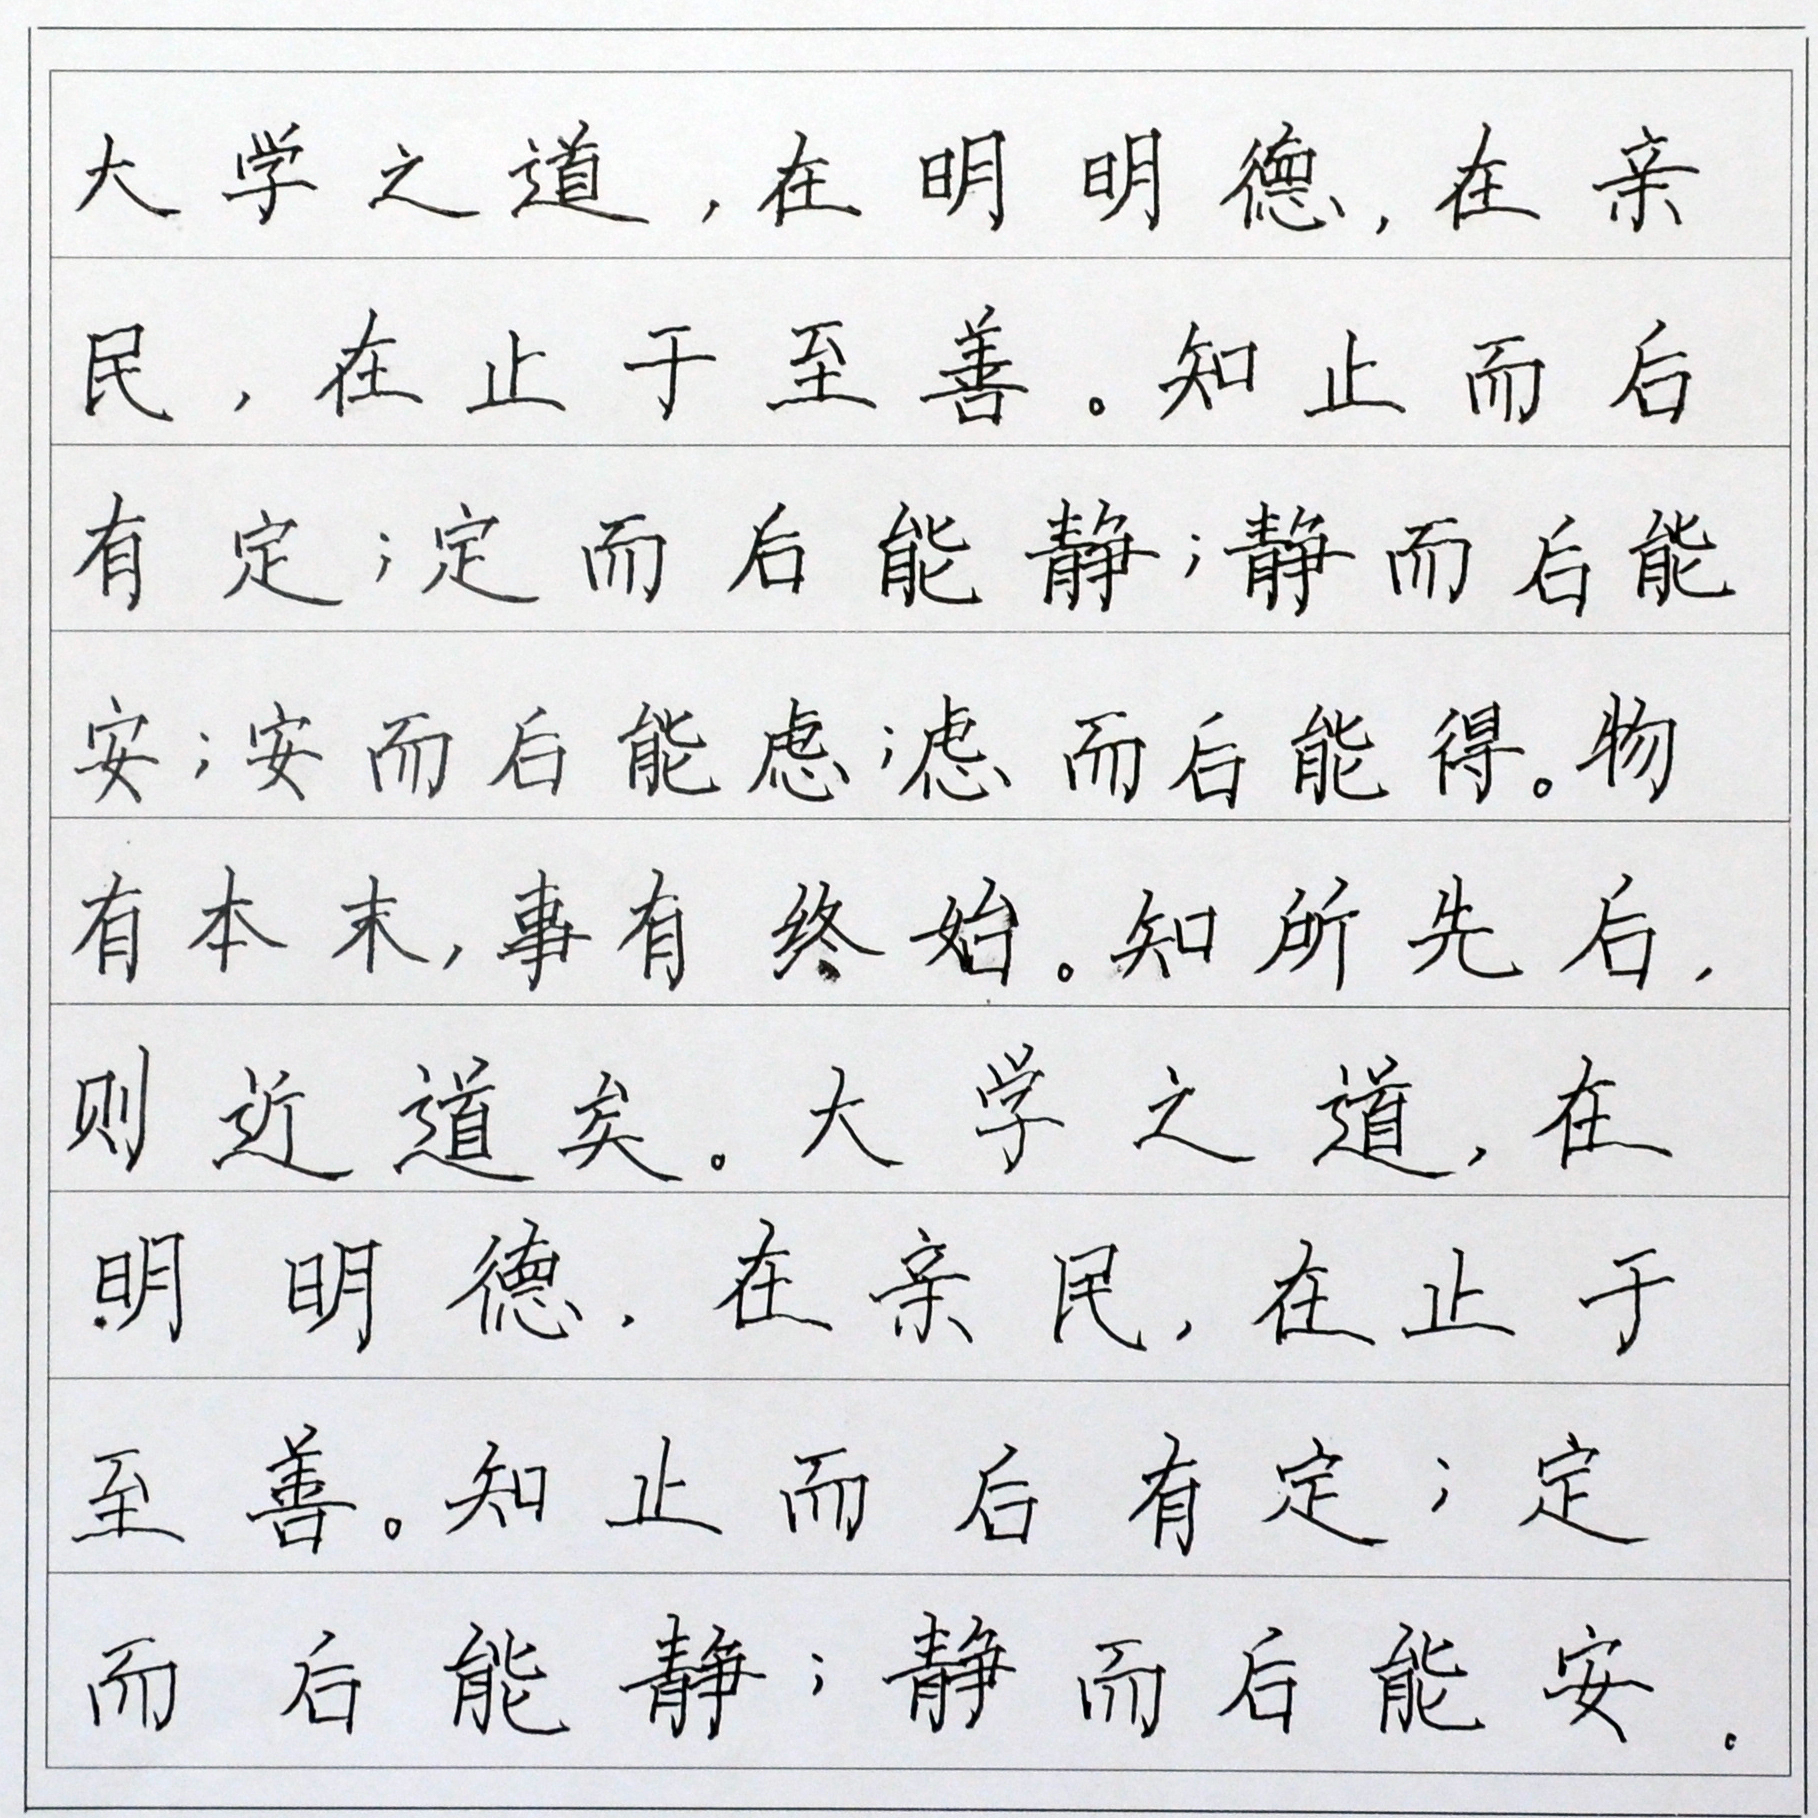 大学之道,在明明德,在亲
民,在止于至善。知止而后
有定;定而后能静;静而后能
安;安而后能虑;虑而后能得。物
有本末,事有终始。知所先后,
则近道矣。大学之道,在
明明德,在亲民,在止于
至善。知止而后有定;定
而后能静;静而后能安。